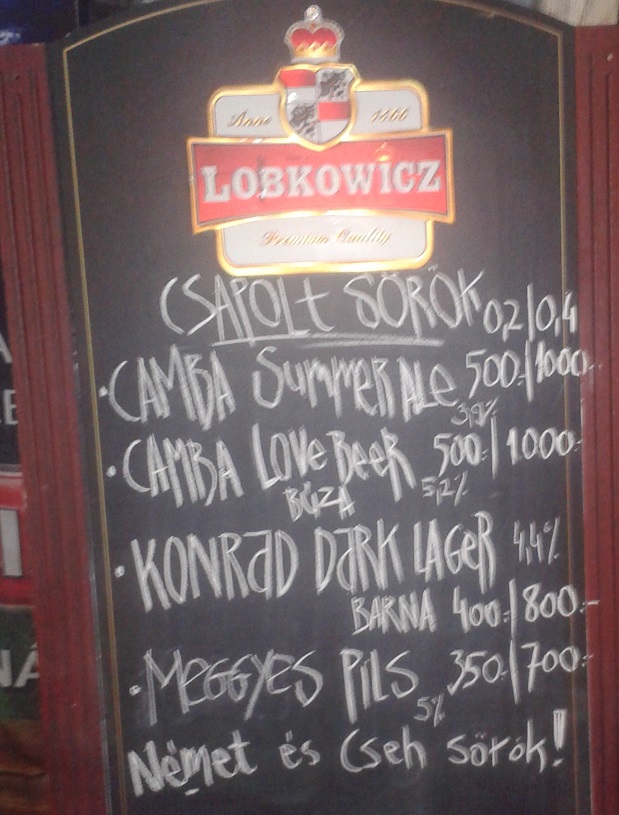 Anno 1466
LOBKOWICZ
Premium Quality
CSAPOLT SÖRÖK 0,2|0,4
·CAMBA SUMMER ALE 500.-|1000.-
3,9%
·CAMBA LOVE BEER 500.-|1000.-
BÚZA 5,2%
·KONRAD DARK LAGER 4,4%
BARNA 400.-|800.-
·MEGGYES PILS 350.-|700.-
5%
Német és Cseh sörök!